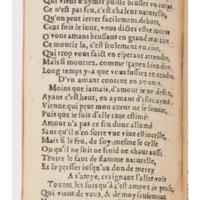 Qui vient d'aymer puisse brusler en corps,
Ce n'est pas feu, c'est chaleur naturelle,
Qu'on peut ietter facilement dehors,
Cent fois le iour, vous dictes estre mors
O vous amans bruslans en grand
Ce mourir la, c'est seulement
Qui trop vous faict en esperant attendre,
Mais si mouriez, comme içanez bien dire,
Long temps y a que vous fussiez en cendre.
D'vn amant content en amour.
Moins que iamais, d'amour ie me
Ayant c'est heur, en aymant d'estre aymé:
Vienne que peut mon cueur ne se soucie,
Puis que ie suis d'elle tant estimé:
Amour n'a pas ce feu donc allumé
Sans qu'il n'en sorte vne viue estincelle,
Mais si le feu, de soy-mesme se celle
Ou qu'il ne soit de froid ne chaut aussi:
Tendre le faut de flamme naturelle,
Et le presser iusqu'au don de mercy
A s'amye, craignant l'aller voir
Toutes les fois qu'à c'est amour ie pense,
Qui vient de vous, & de moy seulement